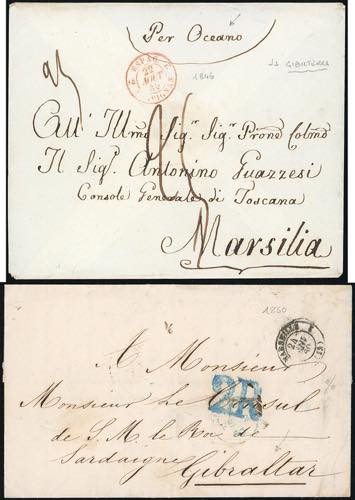 Per Oceano
da GIBILTERRA
1846
ESPAG.
22
52
25
All' Illmo Sigr. Sigr. Prone Colmo
Il Sigr. Antonino Guazzesi
Console Generale di Toscana
Marsilia
1860
MARSEILLE
24
(12)
A Monsieur
2R
Monsieur Le Consul
de S. M. le Roi de
Sardaigne
Gibraltar